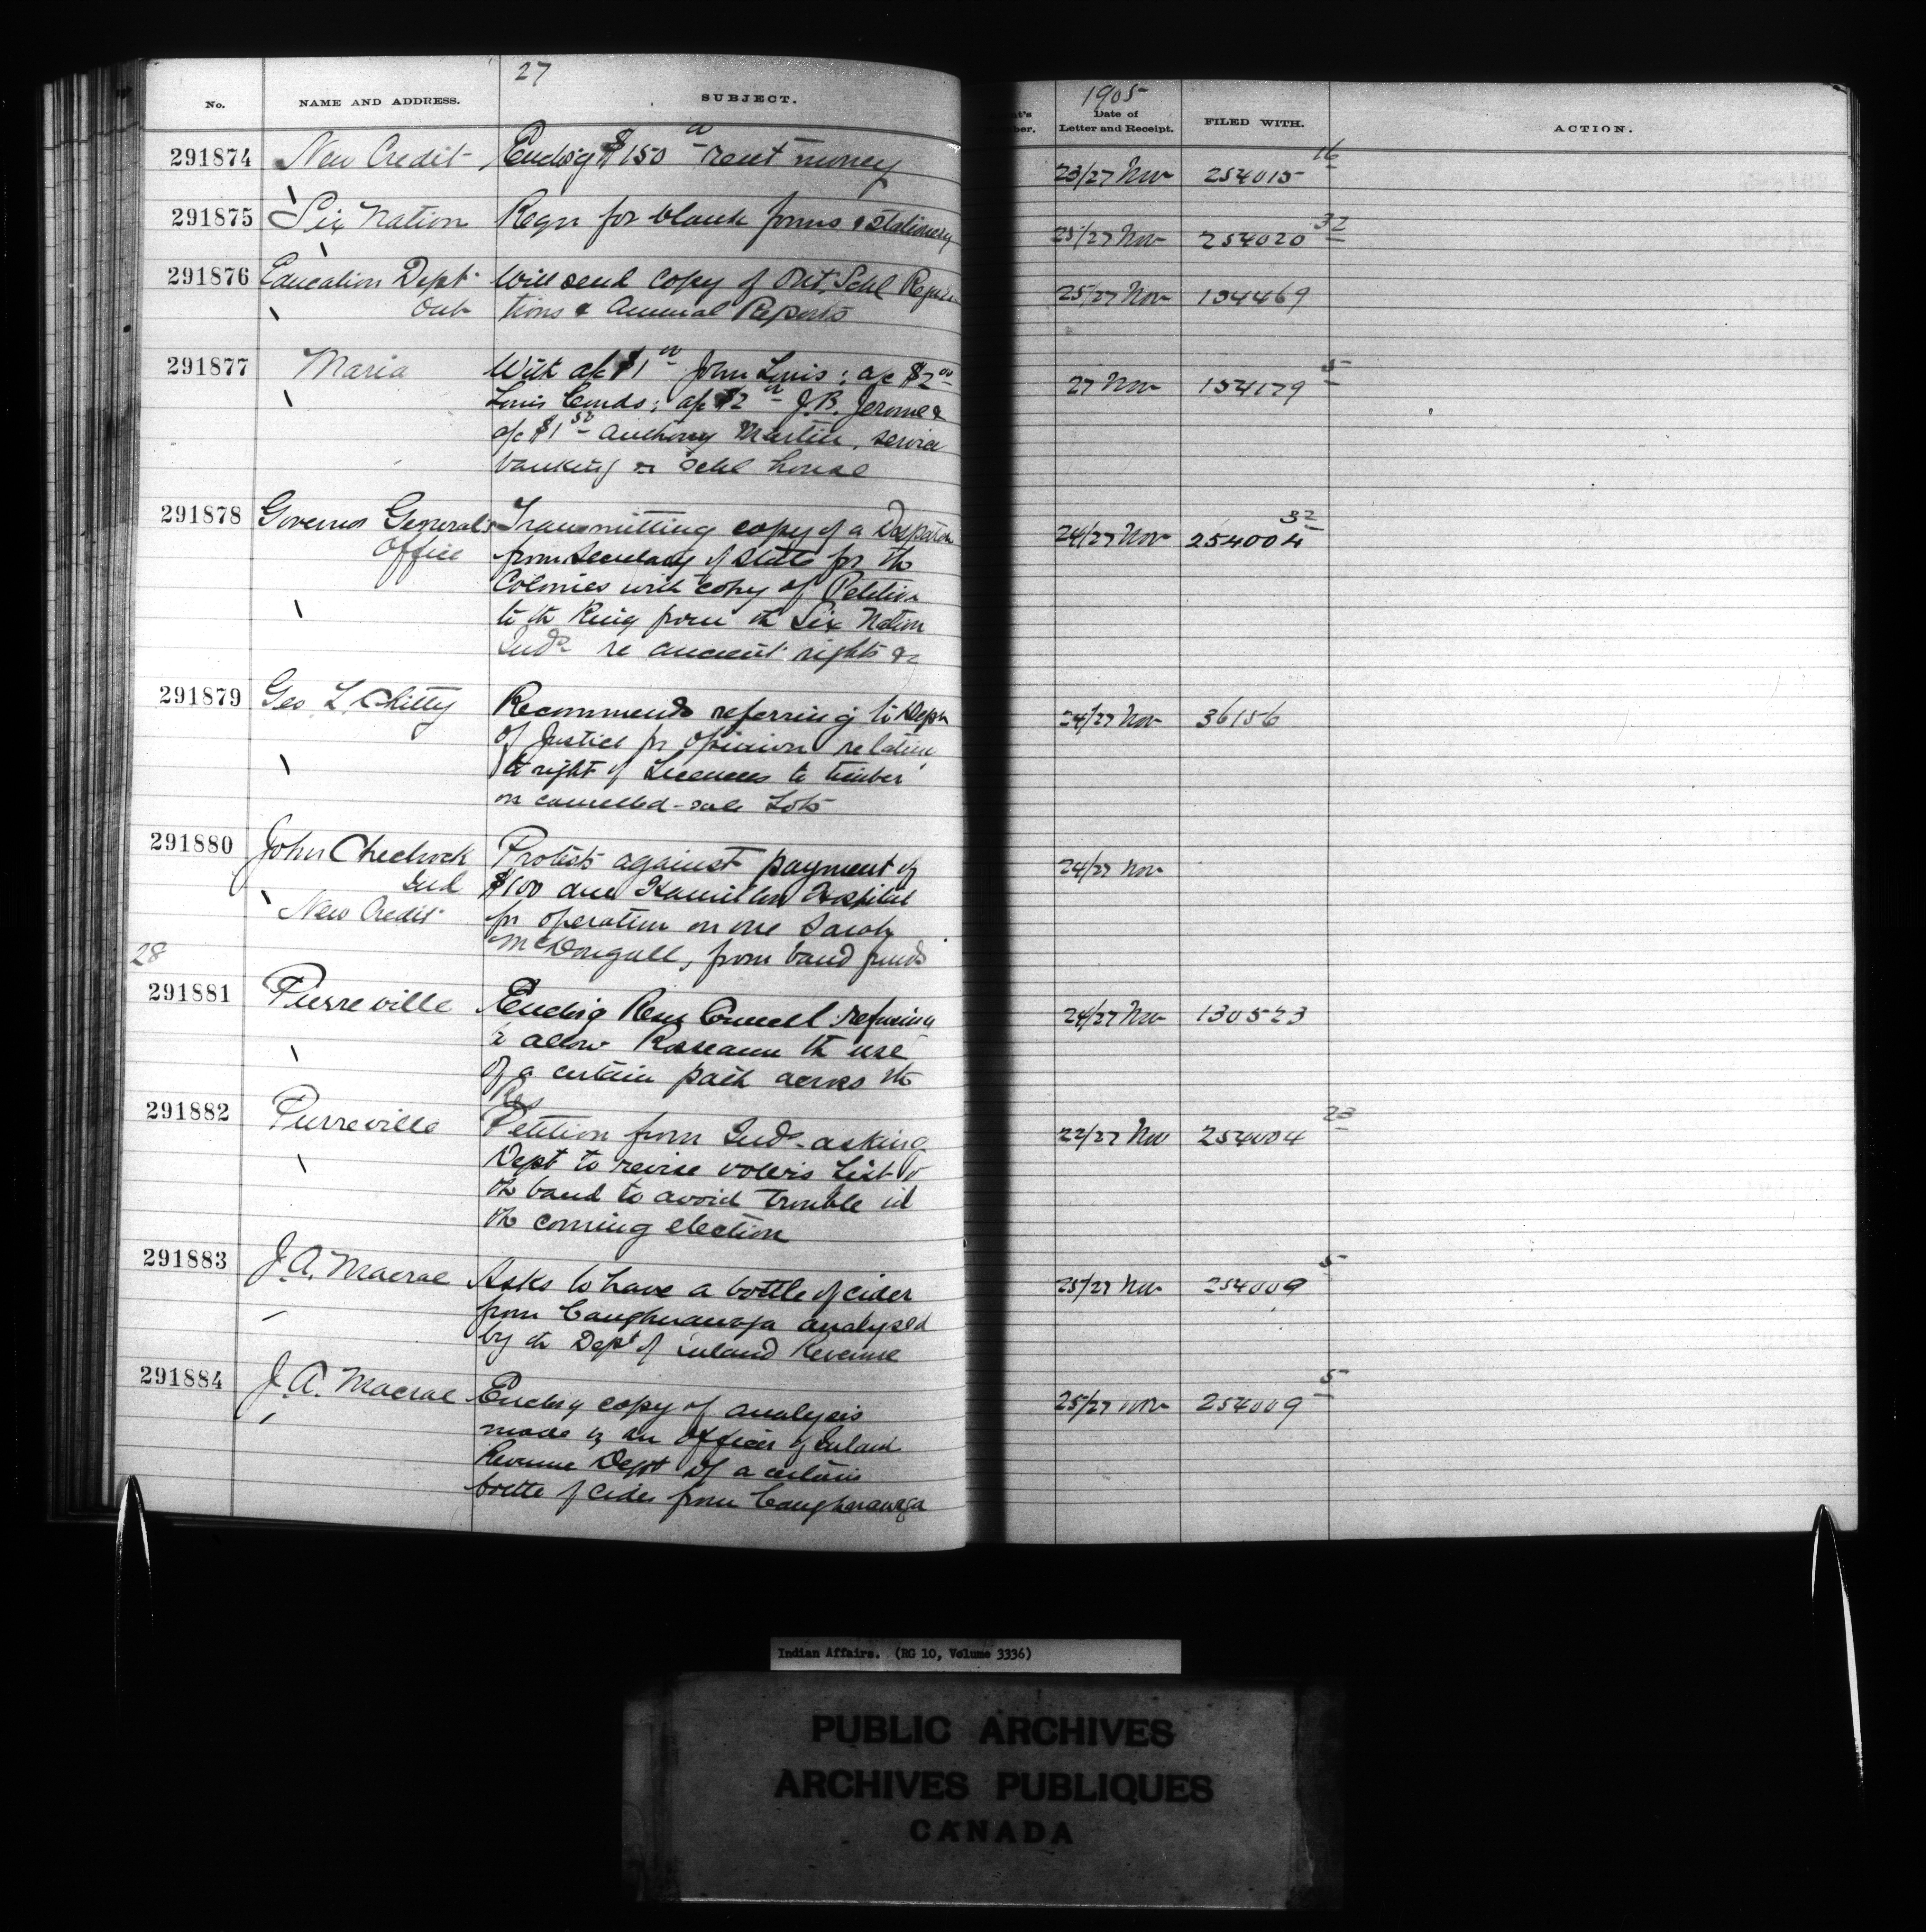 27
No. NAME AND ADDRESS. SUBJECT.
1905
Date of
Letter and Receipt. FILED WITH. ACTION.
291874 New Credit Enclosg $150 00 rent money 23/27 Nov 254015 16
291875 Six Nation Reqn for blank forms & stationery 25/27 Nov 254020 32
291876 Education Dept Will send copy of Ont. Schl Regula 25/27 Nov 154469
Ont tions & Annual Reports
291877 Maria With a/c $1 00 John Louis; a/c $2 00 27 Nov 154179 5
Louis ; a/c $2 00 J.B. Jerome &
a/c $1 50 Anthony Martin, service
banking schl house
291878 Governor General's Transmitting copy of a Despatch 24/27 Nov 254004 32
Office from Secretary of State for the
Colonies with copy of Petition
to th King from th Six Nation
Inds re ancient rights &c
291879 Geo L. Chitty Recommends referring to Dept 24/27 Nov 36156
of Justice for opinion relative
to right of Licencees to timber
on cancelled-sale Lots
291880 John Chechock Protests against payment of 24/27 Nov
Ind $100 due Hamilton Hospital
New Credit for operation on one Sarah
McDougall, from band funds
28
291881 Pierreville Enclosg Resn Council refusing 24/27 Nov 130523
to allow Roseann th use
of a certain path across th
Res
291882 Pierreville Petition from Inds asking 22/27 Nov 254004 23
Dept to revise voters List of
th band to avoid trouble in
th coming election
291883 J.A. Macrae Asks to have a bottle of cider 25/27 Nov 254009 5
from Caughnawaga analysed
by th Dept of Inland Revenue
291884 J.A. Macrae Enclosg copy of analysis 25/27 Nov 254009 5
made by an officer of Inland
Revenue Dept of a certain
bottle of cider from Caughnawaga
Indian Affairs. (RG 10, Volume 3336)
PUBLIC ARCHIVES
ARCHIVES PUBLIQUES
CANADA